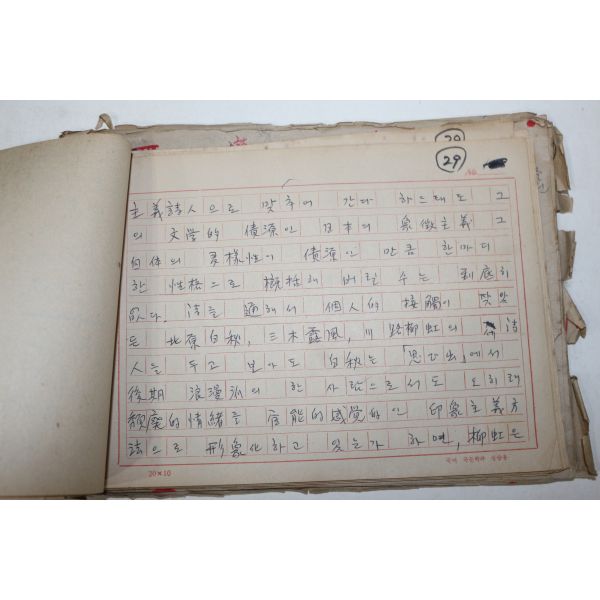 29
29
No.
主義詩人으로 맞추어 간다 하드래도 그
의 文学的 債源인 日本의 象徵主義 그
自体의 多様性이 債源인 만큼 한마디
한 性格으로 概括해 버릴 수는 到底히
없다. 詩를 通해서 個人的 接觸이 잦았
든 北原白秋, 三木露風, 川路柳虹의 詩
人을 두고 보아도 白秋는 「思ひ出」에서
後期 浪漫派의 한 사람으로서도 오히려
頽廃的情緖를 官能的感覚的인 印象主義方
法으로 形象化하고 있는가 하면, 柳虹은
20×10
국어 국문학과